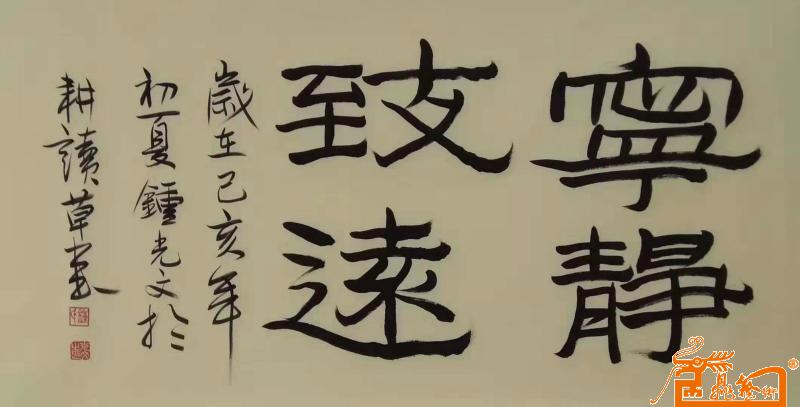 寧靜
致遠
歲在己亥年
初夏鍾光文於
耕讀草堂